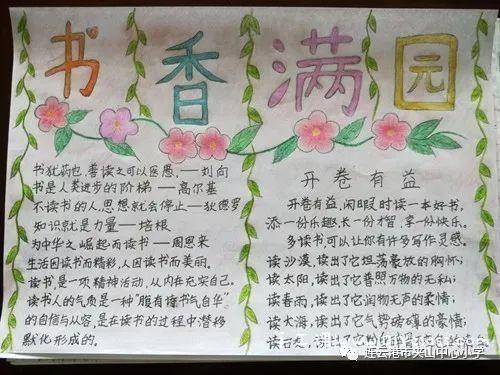 书香满园
书犹药也,善读之可以医愚。——刘向
书是人类进步的阶梯——高尔基
不读书的人思想就会停止——狄德罗
知识就是力量——培根
为中华之崛起而读书——周恩来
生活因读书而精彩,人因读书而美丽。
读书是一项精神活动,从内在充实自己。
读书人的气质是一种"腹有诗书气自华"
的自信与从容,是在读书的过程中潜移
默化形成的。
开卷有益
开卷有益,闲暇时读一本好书,
添一份乐趣,长一份才智,享一份快乐。
多读书,可以让你有许多写作灵感。
读沙漠,读出了它坦荡豪放的胸怀;
读太阳,读出了它普照万物的无私;
读春雨,读出了它润物无声的柔情;
读大海,读出了它气势磅礴的豪情;
读石
连云港市夹山中心小学